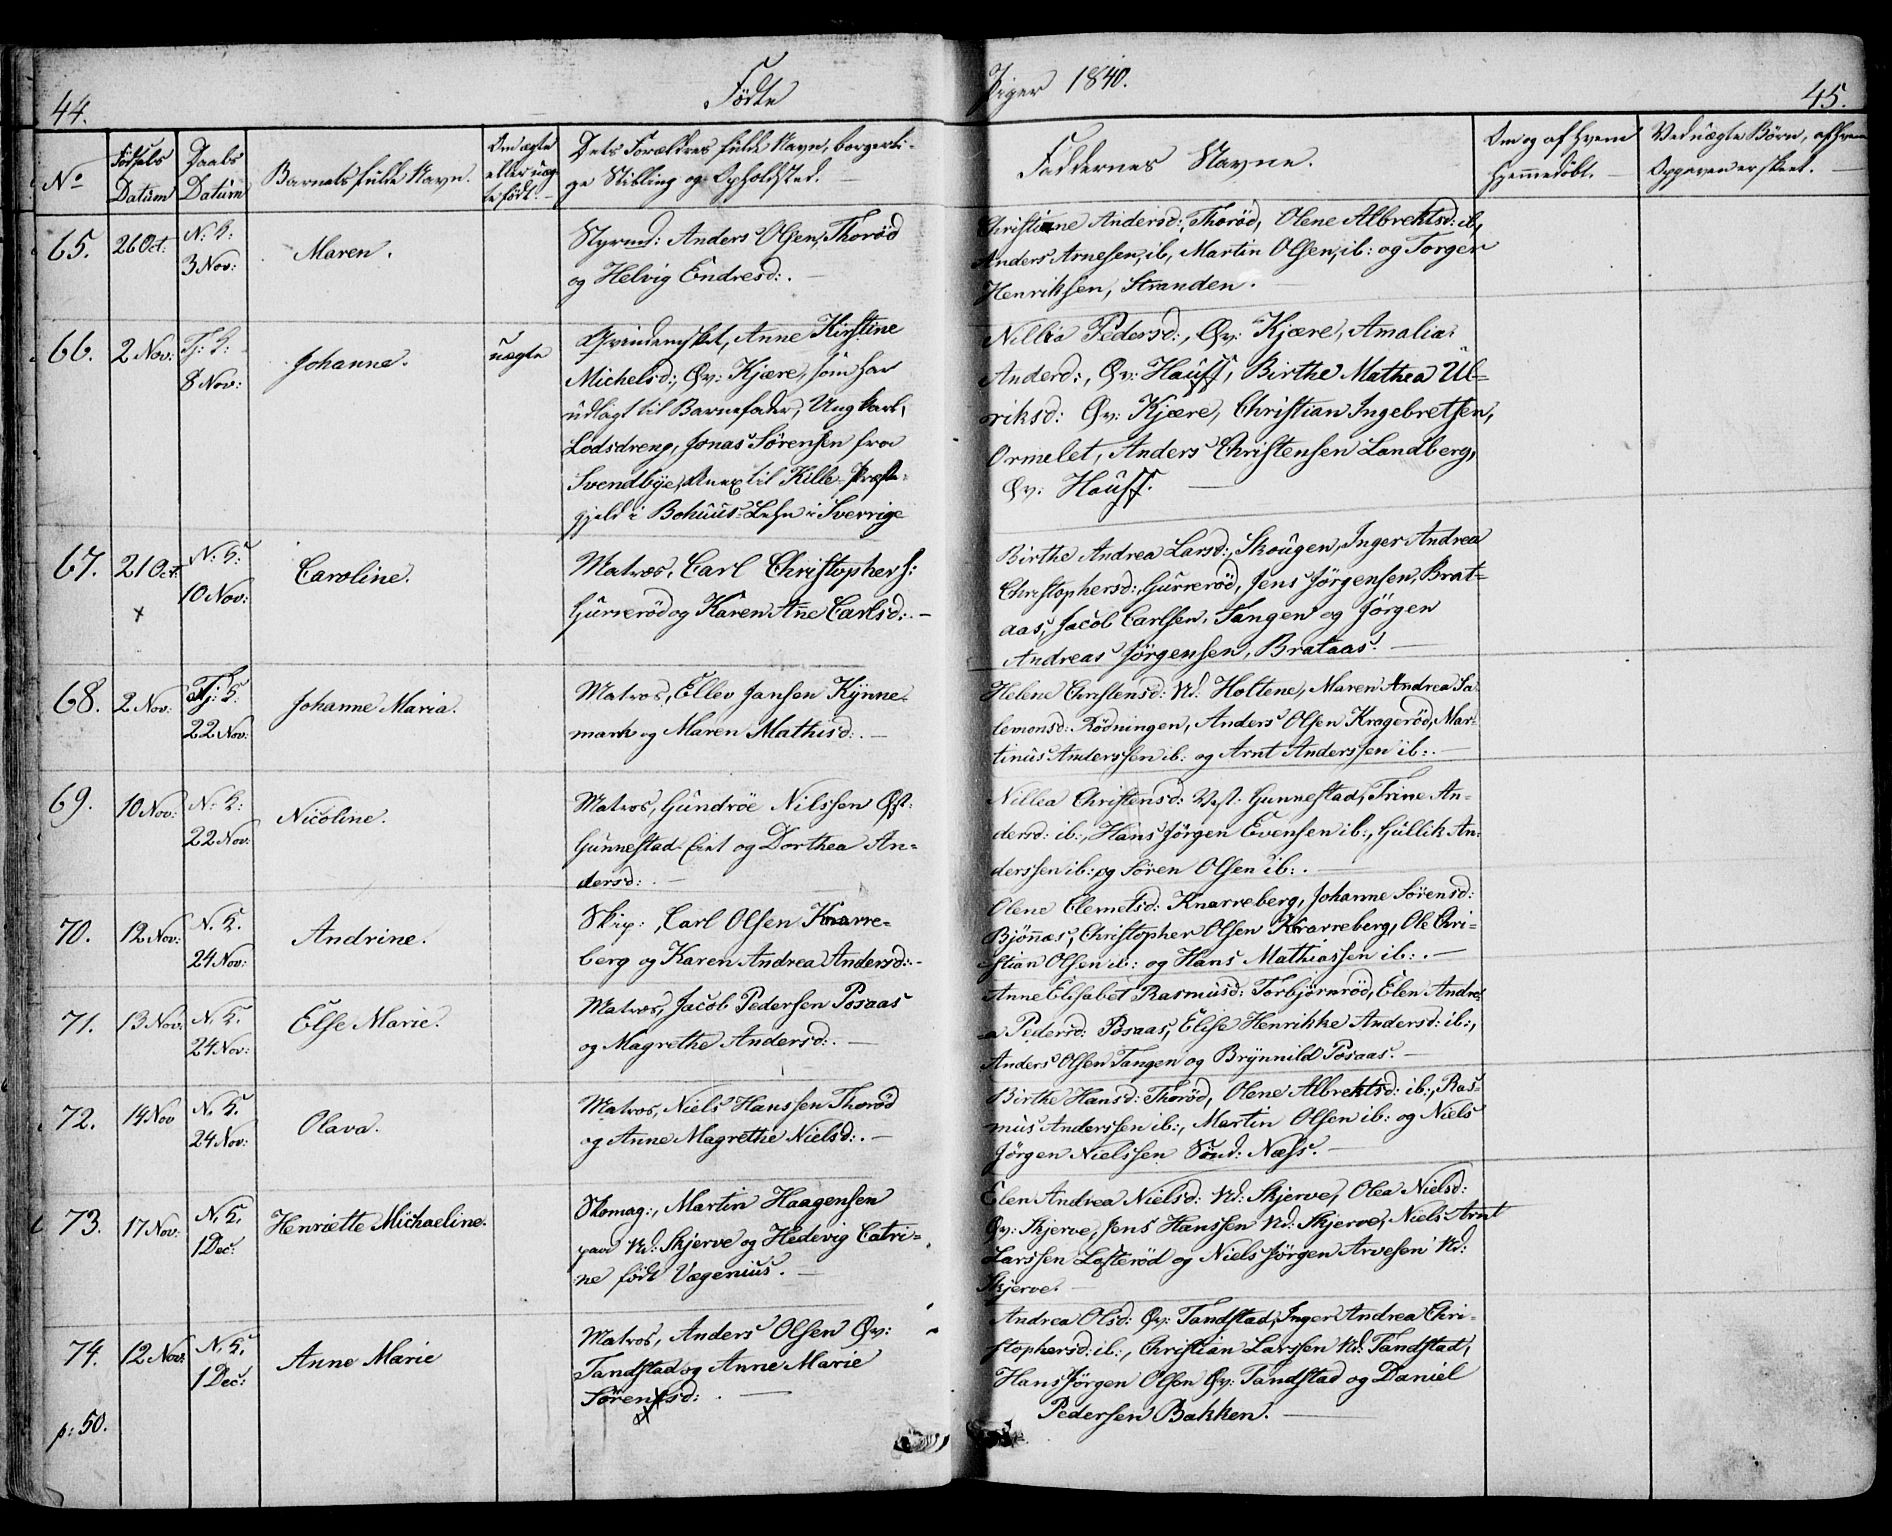 44.
Födte
Piger 1840.
45.
No
Födsels Datum
Daabs Datum
Barnets fulde Navn.
Om ægte eller uæg-
te født.
Dets Forældres fulde Navn, borgerli-
ge Stilling og Opholdsted.
Faddernes Navne.
Om og af hvem
hjemmedöbt.
Ved uægte Börn, af hvem
Opgaven er skeet.
65.
26 Oct:
N: K:
3 Nov:
Maren.
Styrmd: Anders Olsen, Thoröd
og Helvig Endresd:.
Christiane Andersd:, Thoröd, Olene Albrektsd: ib,
Anders Arnesen, ib, Martin Olsen, ib: og Torger
Henriksen, Stranden.
66.
2 Nov:
Tj: K:
8 Nov:
Johanne.
uægte
Qvindemsket, Anne Kirstine
Michelsd:, Öv: Kjære, som har
udlagt til Barnefader, Ungkarl,
Lodsdreng, Jonas Sörensen fra
Svendbye, Anex til Kille-Præste-
gjeld i Bohuus-Lehn i Sverrige
Nillia Pedersd:, Öv: Kjære, Amalia
Anderd:, Öv: Hauff, Birthe Mathea Ul-
riksd: Öv: Kjære, Christian Ingebretsen,
Ormelet, Anders Christensen Landberg,
Öv: Hauff.
67.
21 Oct.
x
N: K:
10 Nov:
Caroline.
Matros, Carl Christophers:
Gurreröd og Karen Anne Carlsd:.
Birthe Andrea Larsd:, Skougen, Inger Andrea
Christophersd:, Gurreröd, Jens Jörgensen, Brat-
aas, Jacob Carlsen, Tangen og Jörgen
Andreas Jörgensen, Brataas.
68.
2 Nov:
Tj: K.
22 Nov:
Johanne Maria.
Matros, Ellev Jansen Kynne-
mark og Maren Mathisd:.
Helene Christensd: Nd: Holtene, Maren Andrea Sa-
lemonsd: Rödningen, Anders Olsen Krageröd, Mar-
tinus Anderssen ib: og Arnt Anderssen ib:.
69.
10 Nov:
N: K:
22 Nov:
Nicoline.
Matros, Gundröe Nilssen Öst-
Gunnestad Eiet og Dorthea An-
dersd:.
Nillea Christensd: Vest. Gunnestad, Trine An-
dersd: ib:, Hans Jörgen Evensen ib:, Gullik An-
derssen ib: og Sören Olsen ib:.
70.
12 Nov:
N. K.
24 Nov:
Andrine.
Skip:, Carl Olsen Knarre-
berg og Karen Andrea Andersd:.
Olene Clemetsd: Knarreberg, Johanne Sörensd:
Bjönnæs, Christopher Olsen Knarreberg, Ole Chri-
stian Olsen ib: og Hans Mathiassen ib:.
71.
13 Nov:
N. K.
24 Nov:
Else Marie.
Matros, Jacob Pedersen Posaas
og Magrethe Andersd:.
Anne Elisabet Rasmusd: Torbjörnröd, Elen Andre-
a Pedersd: Posaas, Elise Henrikke Andersd: ib:,
Anders Olsen Tangen og Brynnild Posaas.
72.
14 Nov
N. K.
24 Nov:
Olava.
Matros, Niels Hanssen Thoröd
og Anne Magrethe Nielsd:.
Birthe Hansd: Thoröd, Olene Albrektsd: ib:, Ras-
mus Anderssen ib:, Martin Olsen ib: og Niels
Jörgen Nielssen Sönd: Næss.
73.
17 Nov:
N. K.
1 Dec:
Henriette Michaeline.
Skomag:, Martin Haagensen
paa Nd: Skjerve og Hedevig Catri-
ne født Vægenius.
Elen Andrea Nielsd: Nd: Skjerve, Olea Nielsd:
Öv: Skjerve, Jens Hanssen Nd: Skjerve, Niels Arnt
Larssen Lofteröd og Niels Jörgen Arvesen Nd:
Skjerve.
74.
12 Nov:
N. K.
1 Dec:
Anne Marie
Matros, Anders Olsen Öv:
Tandstad og Anne Marie
Sörensd:.
Andrea Olsd: Öv: Tandstad, Inger Andrea Chri-
stophersd: ib:, Christian Larssen Nd: Tandstad,
Hans Jörgen Olsen Öv: Tandstad og Daniel
Pedersen Bakken.
p: 50.